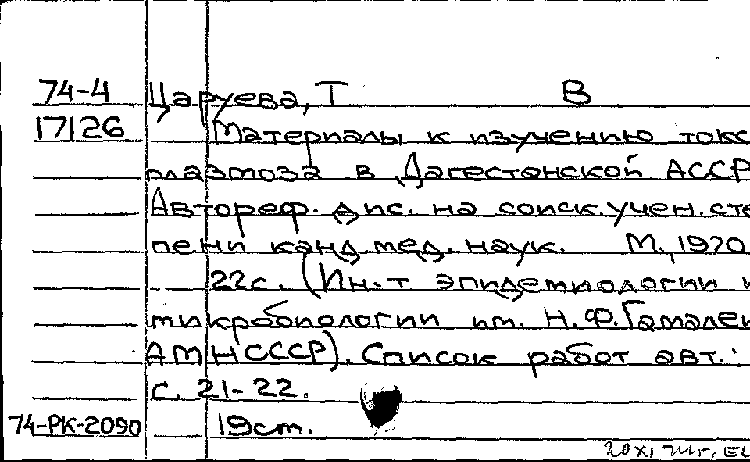 74-4 Царуева, Т В
17126 Материалы к изучению токс
плазмоза в Дагестанской АССР
Автореф. дис. на соиск. учен. сте
пени канд. мед. наук. М., 1970
22 с. (Ин-т эпидемиологии и
микробиологии им. Н.Ф. Гамалеи
АМН СССР). Список работ авт.:
с. 21-22.
74-РК-2090 19 cm.
20 XI